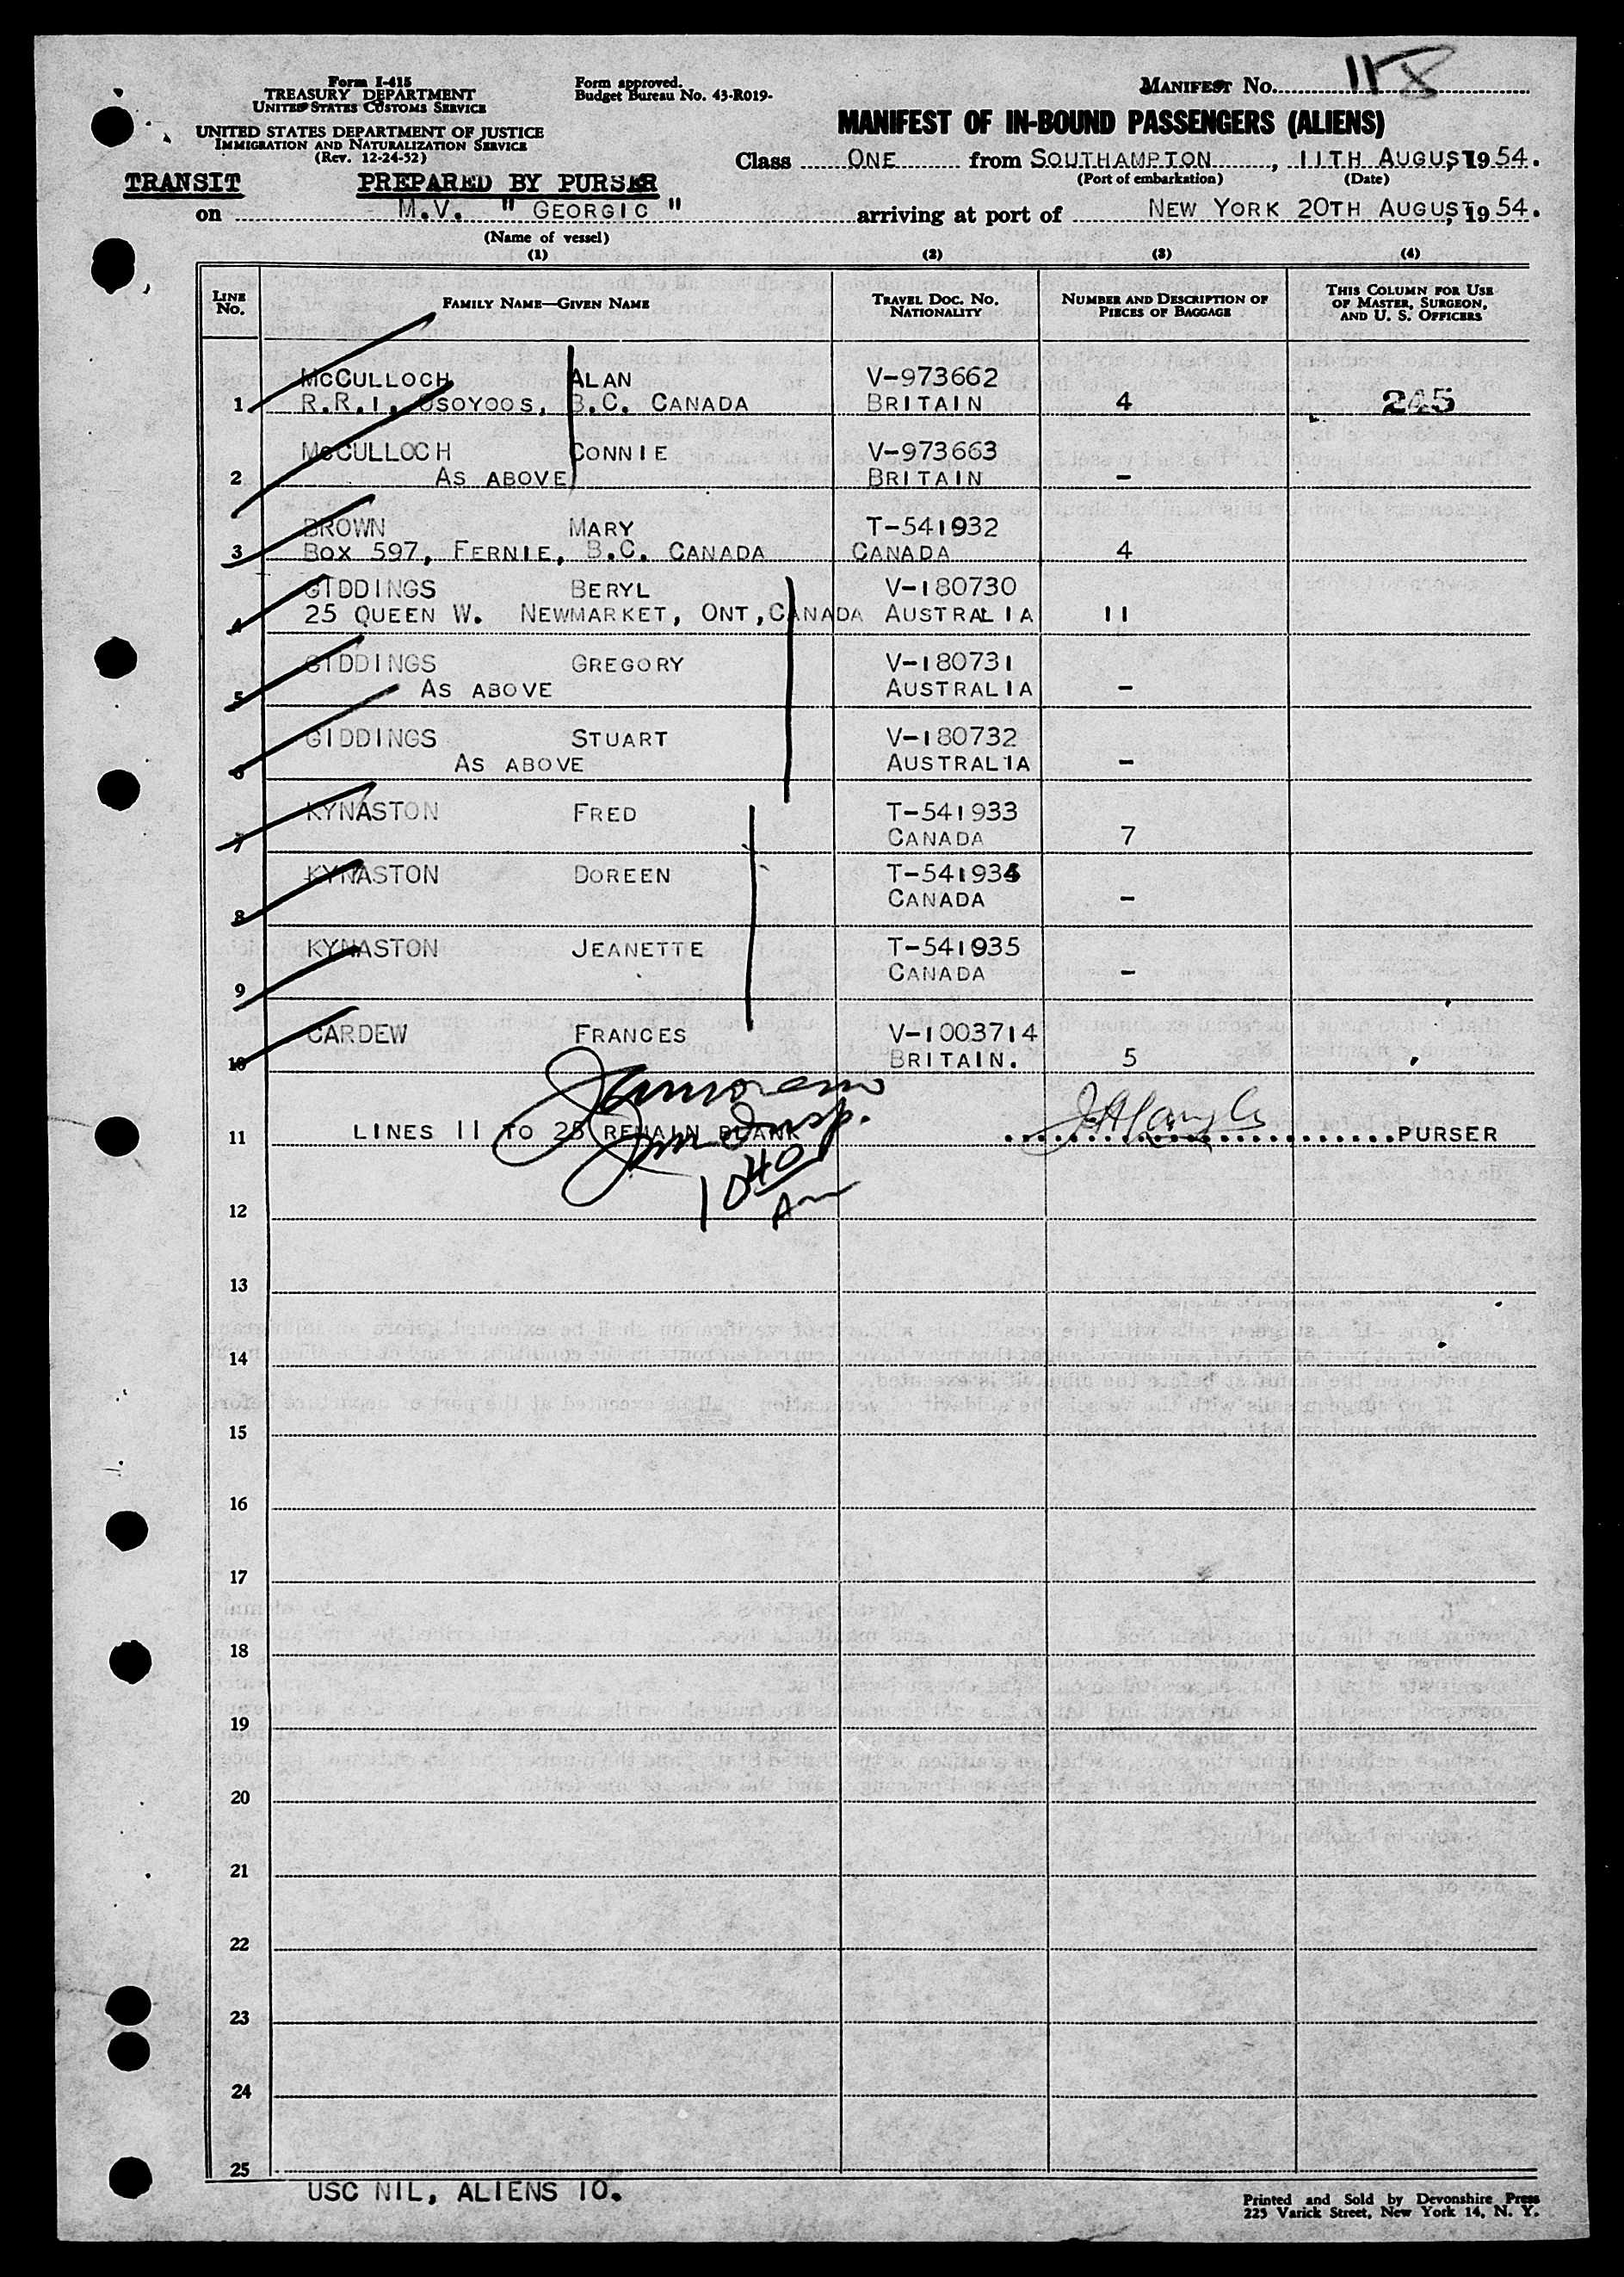 Form I-415
TREASURY DEPARTMENT
UNITED STATES CUSTOMS SERVICE
UNITED STATES DEPARTMENT OF JUSTICE
IMMIGRATION AND NATURALIZATION SERVICE
(Rev. 12-24-52)
Form approved.
Budget Bureau No. 43-R019-
MANIFEST No. 118
MANIFEST OF IN-BOUND PASSENGERS (ALIENS)
Class ONE from SOUTHAMPTON, 11TH AUGUST, 1954.
(Port of embarkation) (Date)
TRANSIT PREPARED BY PURSER
on M.V. "GEORGIC" arriving at port of NEW YORK 20TH AUGUST, 1954.
(Name of vessel)
(1) (2) (3) (4)
LINE No. FAMILY NAME—GIVEN NAME TRAVEL DOC. NO. NATIONALITY NUMBER AND DESCRIPTION OF PIECES OF BAGGAGE THIS COLUMN FOR USE OF MASTER, SURGEON, AND U. S. OFFICERS
MCCULLOCH ALAN V-973662
1 R.R.1, OSOYOOS, B.C. CANADA BRITAIN 4 245
MCCULLOCH CONNIE V-973663
2 AS ABOVE BRITAIN -
BROWN MARY T-541932
3 BOX 597, FERNIE, B.C. CANADA CANADA 4
GIDDINGS BERYL V-180730
4 25 QUEEN W. NEWMARKET, ONT, CANADA AUSTRALIA 11
GIDDINGS GREGORY V-180731
5 AS ABOVE AUSTRALIA -
GIDDINGS STUART V-180732
6 AS ABOVE AUSTRALIA -
KYNASTON FRED T-541933
7 CANADA 7
KYNASTON DOREEN T-541934
8 CANADA -
KYNASTON JEANETTE T-541935
9 CANADA -
CARDEW FRANCES V-1003714
10 BRITAIN. 5
Imm Insp.
11 LINES 11 TO 25 REMAIN BLANK PURSER
10 40 AM
12
13
14
15
16
17
18
19
20
21
22
23
24
25
USC NIL, ALIENS 10.
Printed and Sold by Devonshire Press
225 Varick Street, New York 14, N. Y.